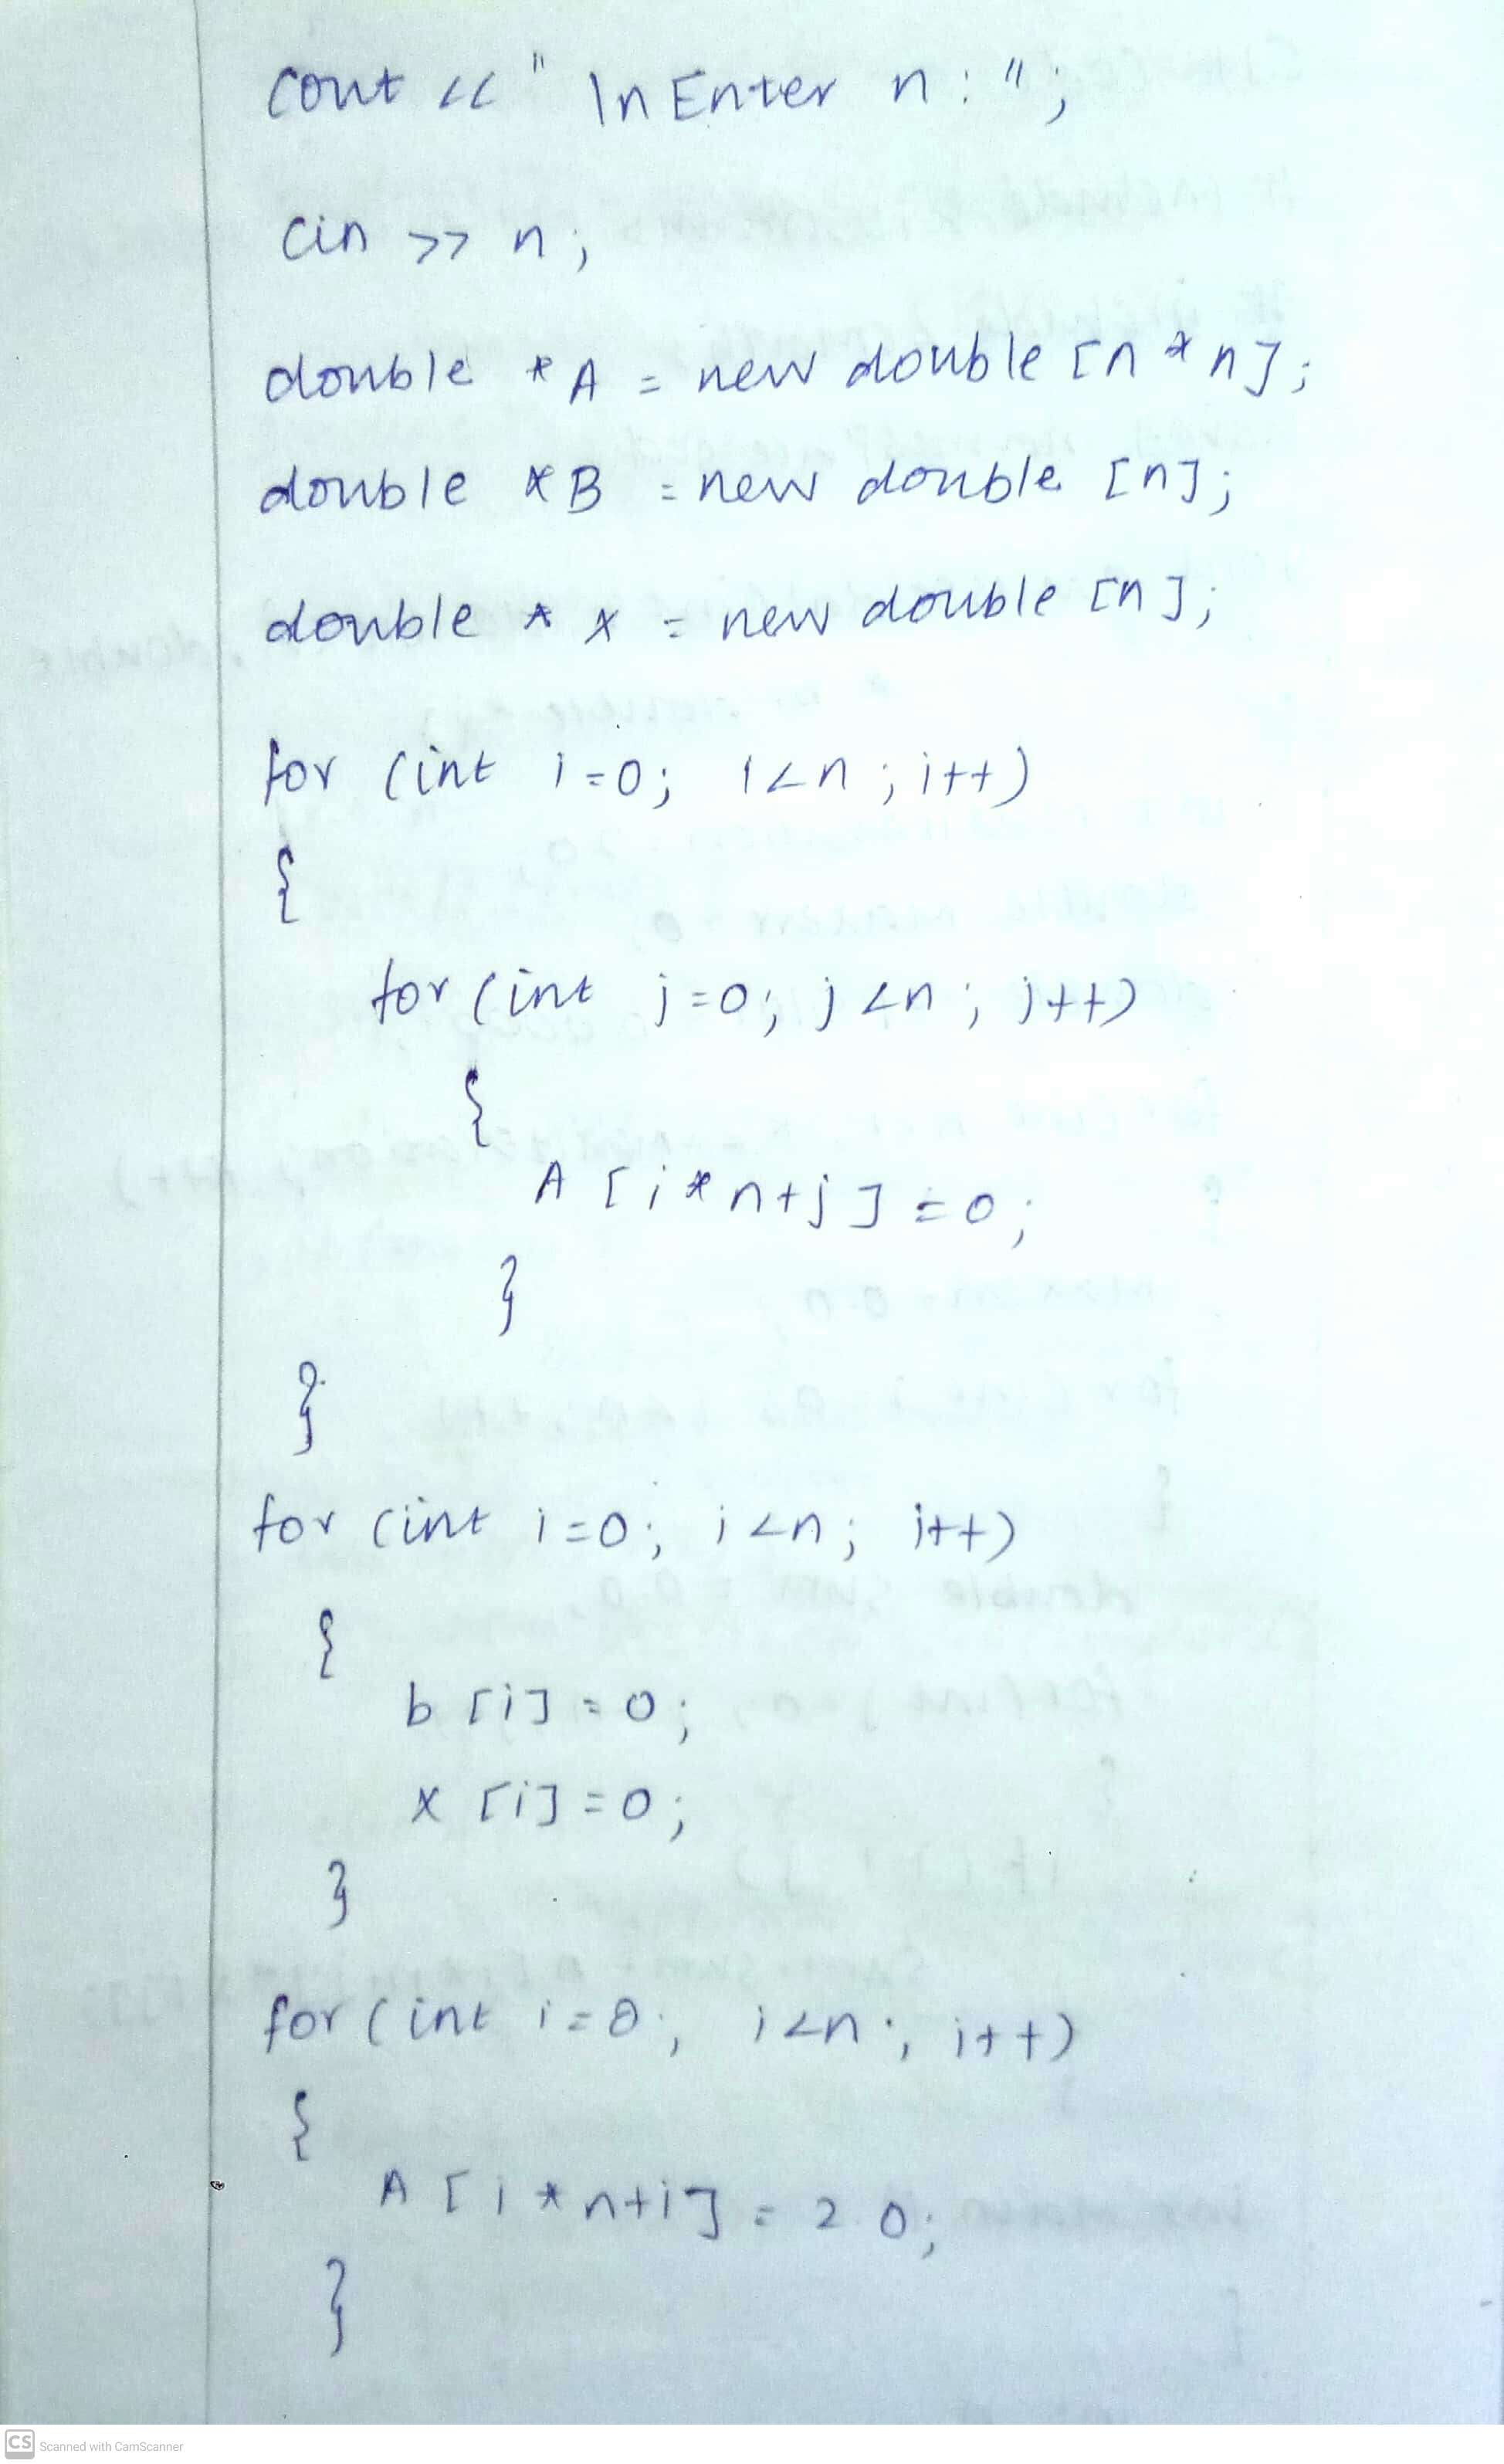 cout << " \n Enter n : " ;
cin >> n ;
double *A = new double [n * n] ;
double *B = new double [n] ;
double * x = new double [n] ;
for (int i=0; i<n ; i++)
{
for (int j=0; j<n ; j++)
{
A [i*n+j] = 0 ;
}
}
for (int i=0; i<n; i++)
{
b [i] = 0 ;
x [i] = 0 ;
}
for (int i=0; i<n ; i++)
{
A [i*n+i] = 2 0 ;
}
CS Scanned with CamScanner